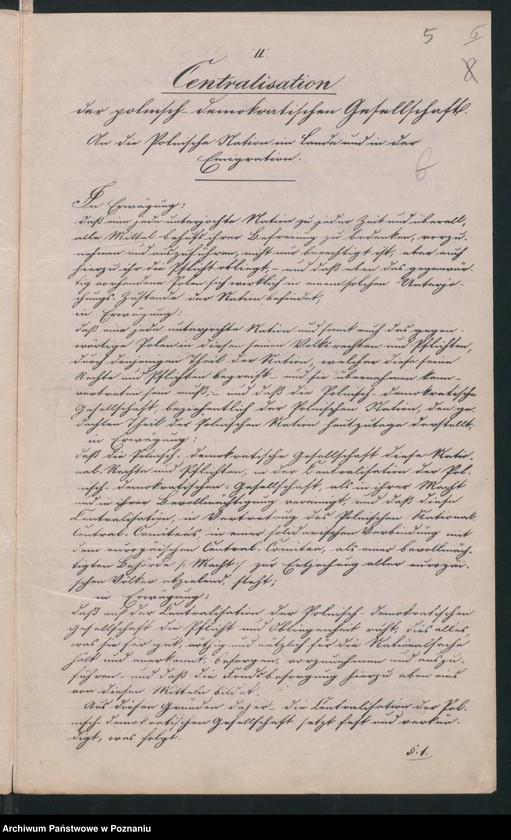 5
6
8
II.
Centralisation
der polnisch-demokratischen Gesellschaft.
An die Polnische Nation im Lande und in der
Emigration.
6
In Erwägung:
daß eine jede unterjochte Nation zu jeder Zeit und überall,
alle Mittel behufs ihrer Befreiung zu bedenken, vorzu-
nehmen und auszuführen, nicht nur berechtigt ist, aber auch
hierzu ihr die Pflicht obliegt, – und daß eben das gegenwär-
tig vorhandene Polen sich wirklich in einem solchen Unterjo-
chungs-Zustande der Nation befindet,
in Erwägung:
daß eine jede unterjochte Nation und somit auch das gegen-
wärtige Polen in diesen seinen Volksrechten und Pflichten,
durch denjenigen Theil der Nation, welcher diese seine
Rechte und Pflichten begreift und sie übernehmen kann
vertreten sein muß, – und daß die Polnisch-demokratische
Gesellschaft, beziehentlich der Polnischen Nation, den ge-
dachten Theil der Polnischen Nation heutzutage darstellt,
in Erwägung:
daß die Polnisch-demokratische Gesellschaft diese Natio-
nal-Rechte und Pflichten, in der Centralisation der Pol-
nisch-demokratischen Gesellschaft, als in ihrer Macht
und in ihrer Bevollmächtigung vereinigt, und daß diese
Centralisation, in Vertretung des Polnischen National-
Central-Comitees, in einer solidarischen Verbindung mit
dem europäischen Central-Comitee, als einer bevollmäch-
tigten Behörde /: Macht :/ zur Entjochung aller europäi-
schen Völker abzielend, steht;
in Erwägung:
daß auf der Centralisation der Polnisch-demokratischen
Gesellschaft die Pflicht und Obliegenheit ruht, dies alles,
was sie für gut, nöthig und nützlich für die Nationalsache
hält und anerkennt, besorgen, vorzunehmen und auszu-
führen – und daß die Fondsbesorgung hierzu eben eins
von diesen Mitteln bildet.
Aus diesen Gründen daher – die Centralisation der Pol-
nisch-demokratischen Gesellschaft setzt fest und verkün-
digt, was folgt.
§. 1.
Archiwum Państwowe w Poznaniu